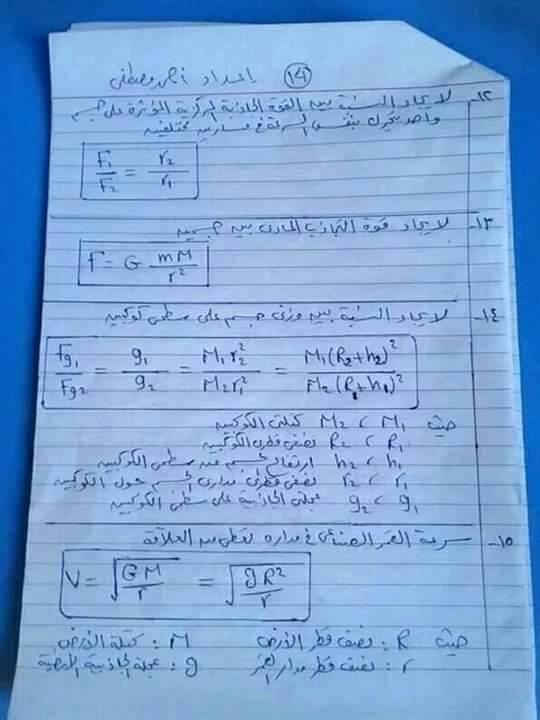 (14) إعداد أحمد مصطفى
١٢- لإيجاد النسبة بين القوة الجاذبة المركزية المؤثرة على جسم
واحد يتحرك بنفس السرعة في مسارين مختلفين
F₁/F₂ = r₂/r₁
١٣- لإيجاد قوة التجاذب المادى بين جسمين
F = G mM/r²
١٤- لإيجاد النسبة بين وزنى جسم على سطحى كوكبين
Fg₁/Fg₂ = g₁/g₂ = M₁r₂²/M₂r₁² = M₁(R₂+h₂)²/M₂(R₁+h₁)²
حيث M₁ ، M₂ كتلتى الكوكبين
R₁ ، R₂ نصف قطرى الكوكبين
h₁ ، h₂ ارتفاع الجسم عند سطحى الكوكبين
r₁ ، r₂ نصف قطرى مدارى الجسم حول الكوكبين
g₁ ، g₂ عجلتى الجاذبية على سطحى الكوكبين
١٥- سرعة القمر الصناعى في مداره تعطى من العلاقة
V = √(GM/r) = √(gR²/r)
حيث R : نصف قطر الأرض M : كتلة الأرض
r : نصف قطر مدار القمر g : عجلة الجاذبية الأرضية